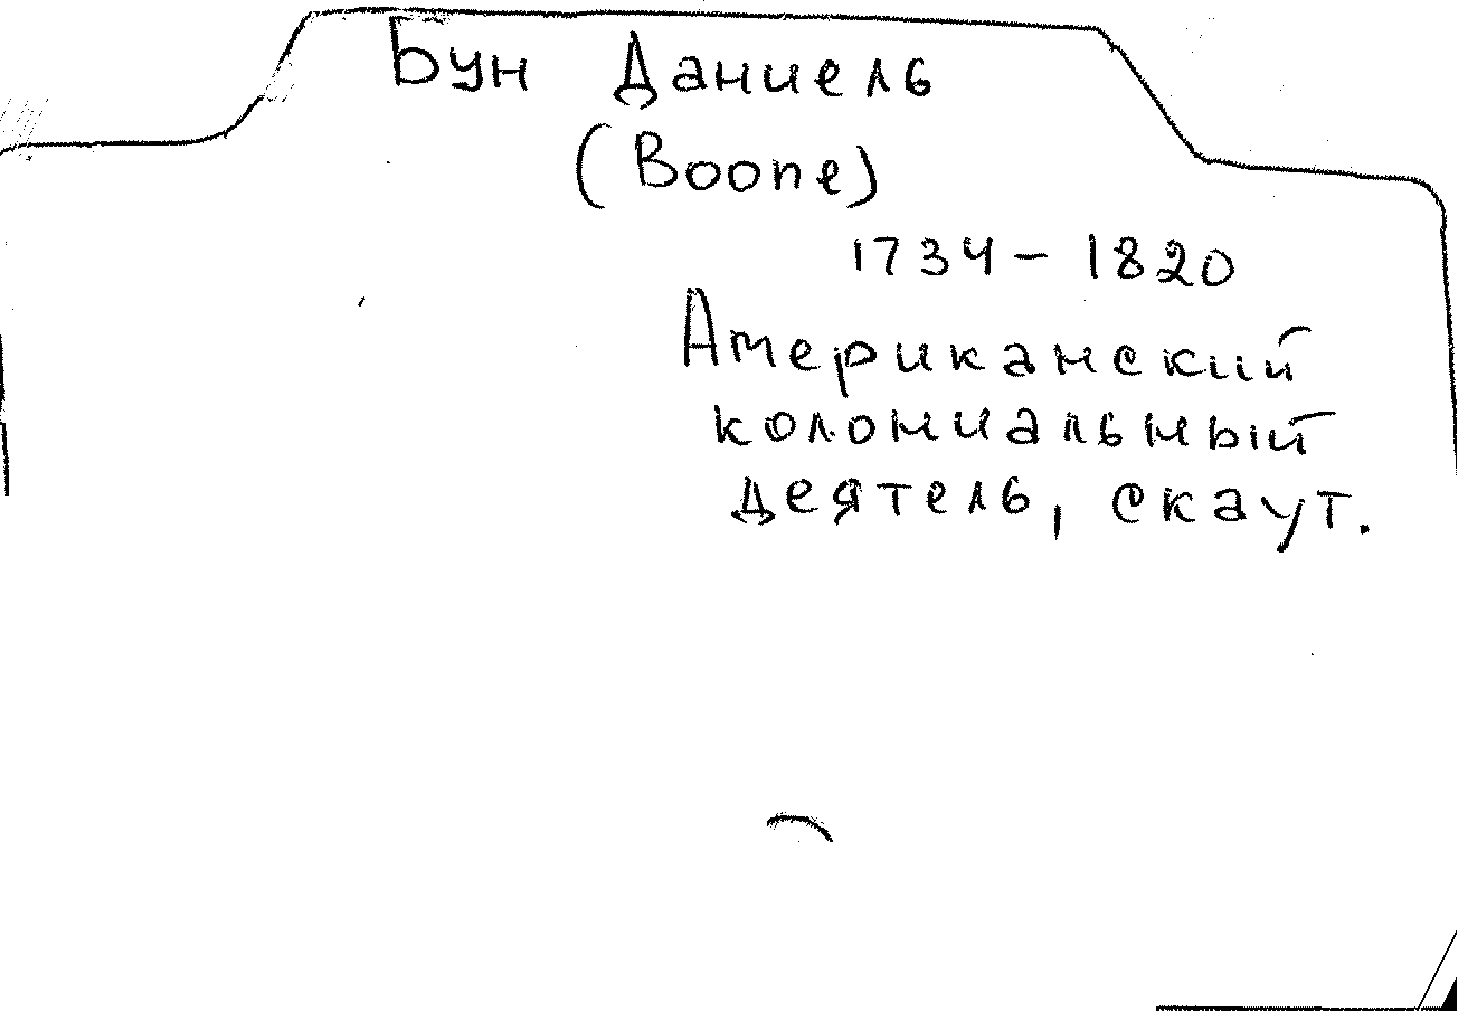 Бун Даниель
(Boone)
1734 – 1820
Американский
колониальный
деятель, скаут.